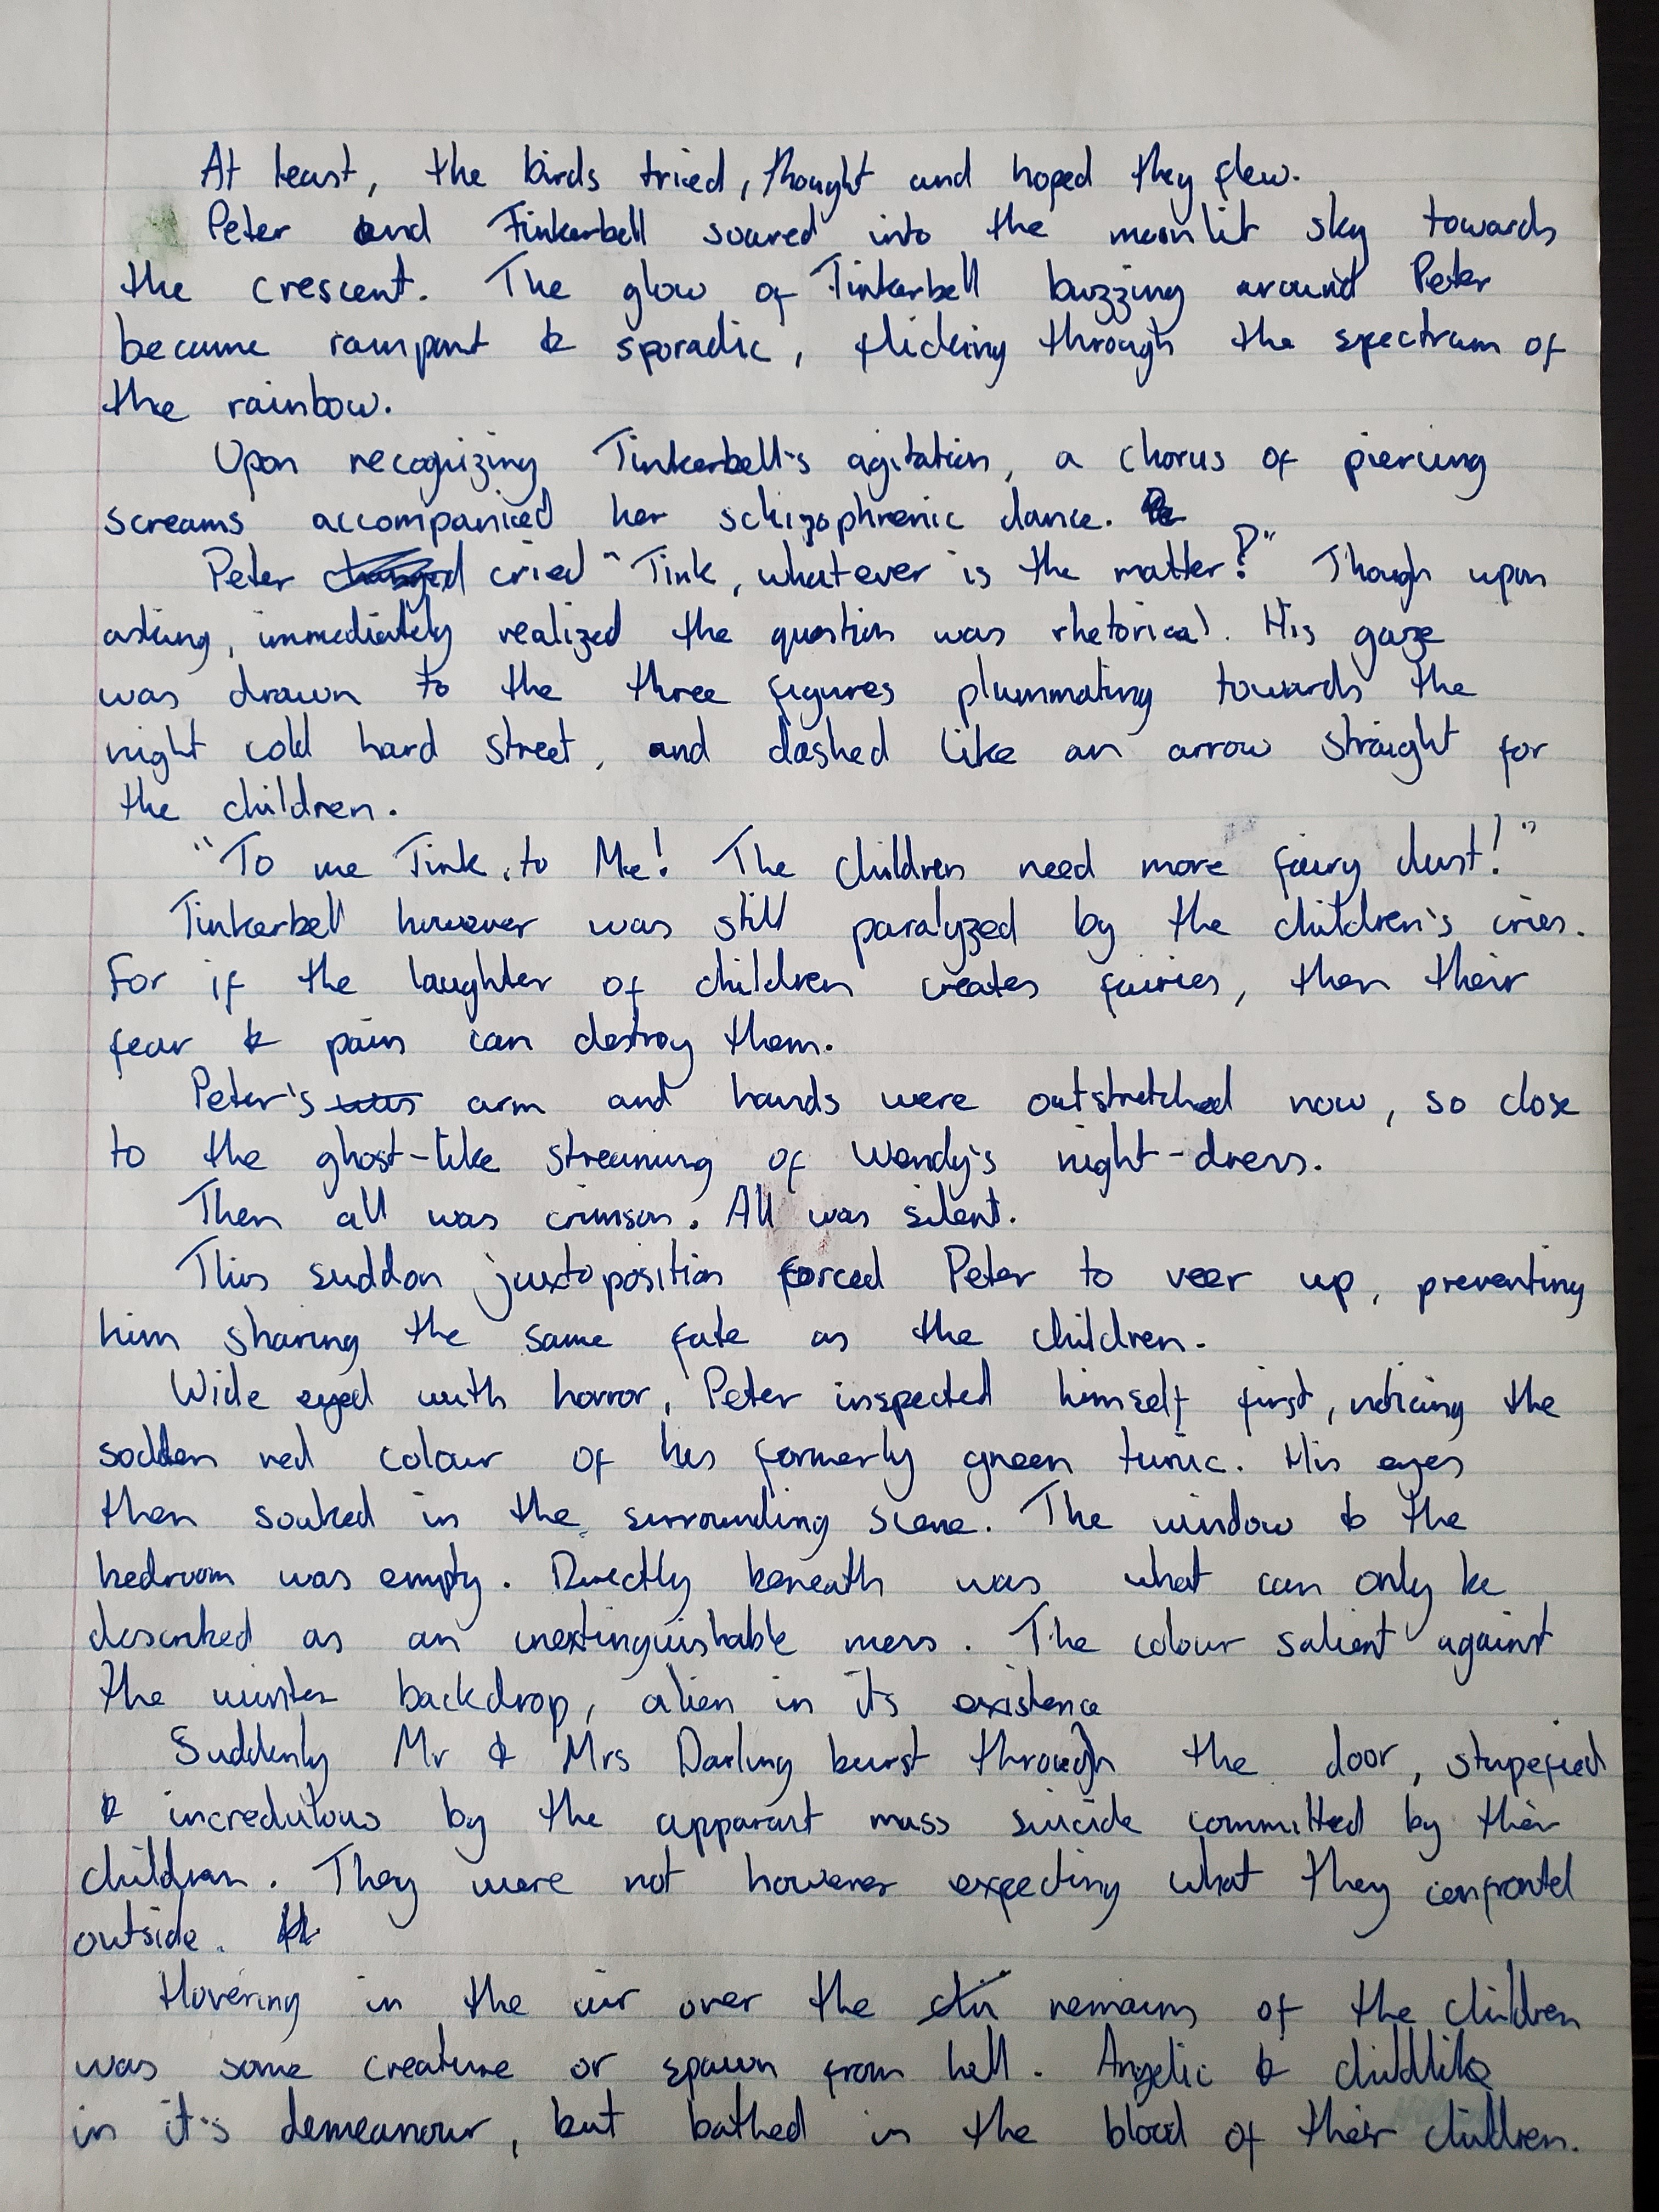 At least, the birds tried, thought and hoped they flew.
Peter and Tinkerbell soared into the moonlit sky towards
the crescent. The glow of Tinkerbell buzzing around Peter
became rampant & sporadic, flicking through the spectrum of
the rainbow.
Upon recognizing Tinkerbell's agitation, a chorus of piercing
screams accompanied her schizophrenic dance.
Peter cried "Tink, whatever is the matter?" Though upon
asking, immediately realized the question was rhetorical. His gaze
was drawn to the three figures plummating towards the
night cold hard street, and dashed like an arrow straight for
the children.
"To me Tink, to Me! The children need more fairy dust!"
Tinkerbell however was still paralyzed by the children's cries.
For if the laughter of children creates fairies, then their
fear & pain can destroy them.
Peter's arm and hands were outstretched now, so close
to the ghost-like streaming of Wendy's night-dress.
Then all was crimson. All was silent.
This sudden juxtoposition forced Peter to veer up, preventing
him sharing the same fate as the children.
Wide eyed with horror, Peter inspected himself first, noticing the
sodden red colour of his formerly green tunic. His eyes
then soaked in the surrounding scene. The window to the
bedroom was empty. Directly beneath was what can only be
described as an inextinguishable mess. The colour salient against
the winter backdrop, alien in its existence
Suddenly Mr & Mrs Darling burst through the door, stupefied
& incredulous by the apparant mass suicide committed by their
children. They were not however expecting what they confrontd
outside.
Hovering in the air over the remains of the children
was some creature or spawn from hell. Angelic & childlike
in it's demeanour, but bathed in the blood of their children.